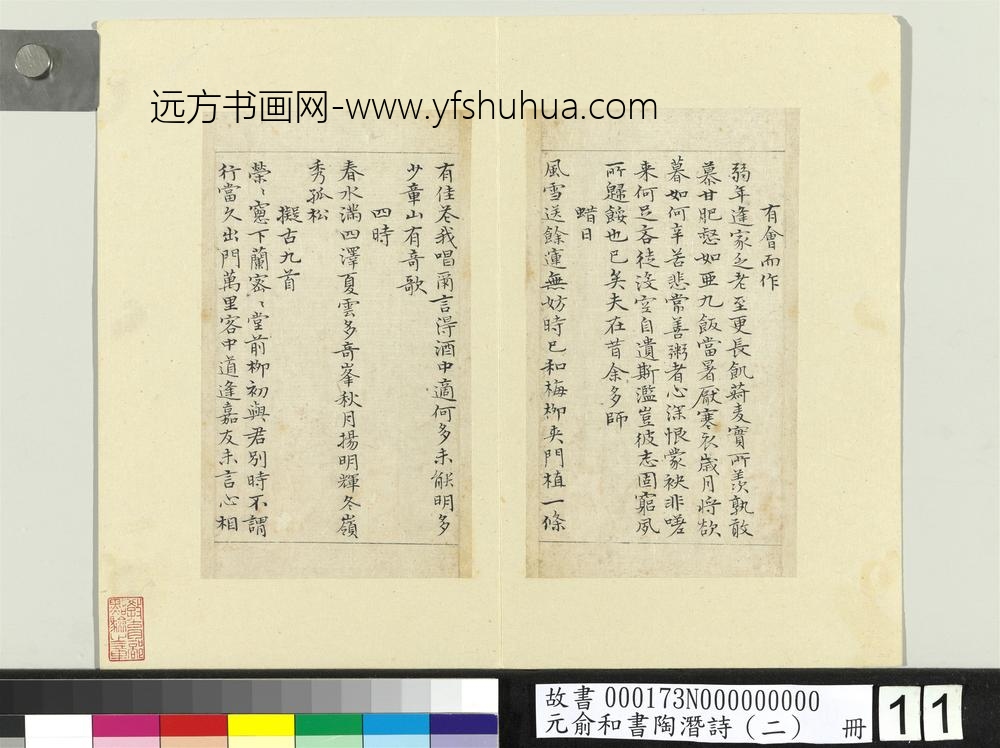 远方书画网-www.yfshuhua.com
有會而作
弱年逢家乏老至更長飢菽麦實所羨孰敢
慕甘肥惄如亜九飯當暑厭寒衣歲月將欲
暮如何辛苦悲常善粥者心深恨蒙袂非嗟
来何足吝徒没空自遺斯濫豈彼志固窮夙
所歸餒也已矣夫在昔余多師
蜡日
風雪送餘運無妨時已和梅柳夾門植一條
有佳花我唱爾言得酒中適何多未能明多
少章山有奇歌
四時
春水滿四澤夏雲多奇峯秋月揚明輝冬嶺
秀孤松
擬古九首
榮〻窻下蘭密〻堂前柳初與君別時不謂
行當久出門萬里客中道逢嘉友未言心相
教育部點驗之章
故書 000173N000000000
元俞和書陶潛詩（二） 冊
11